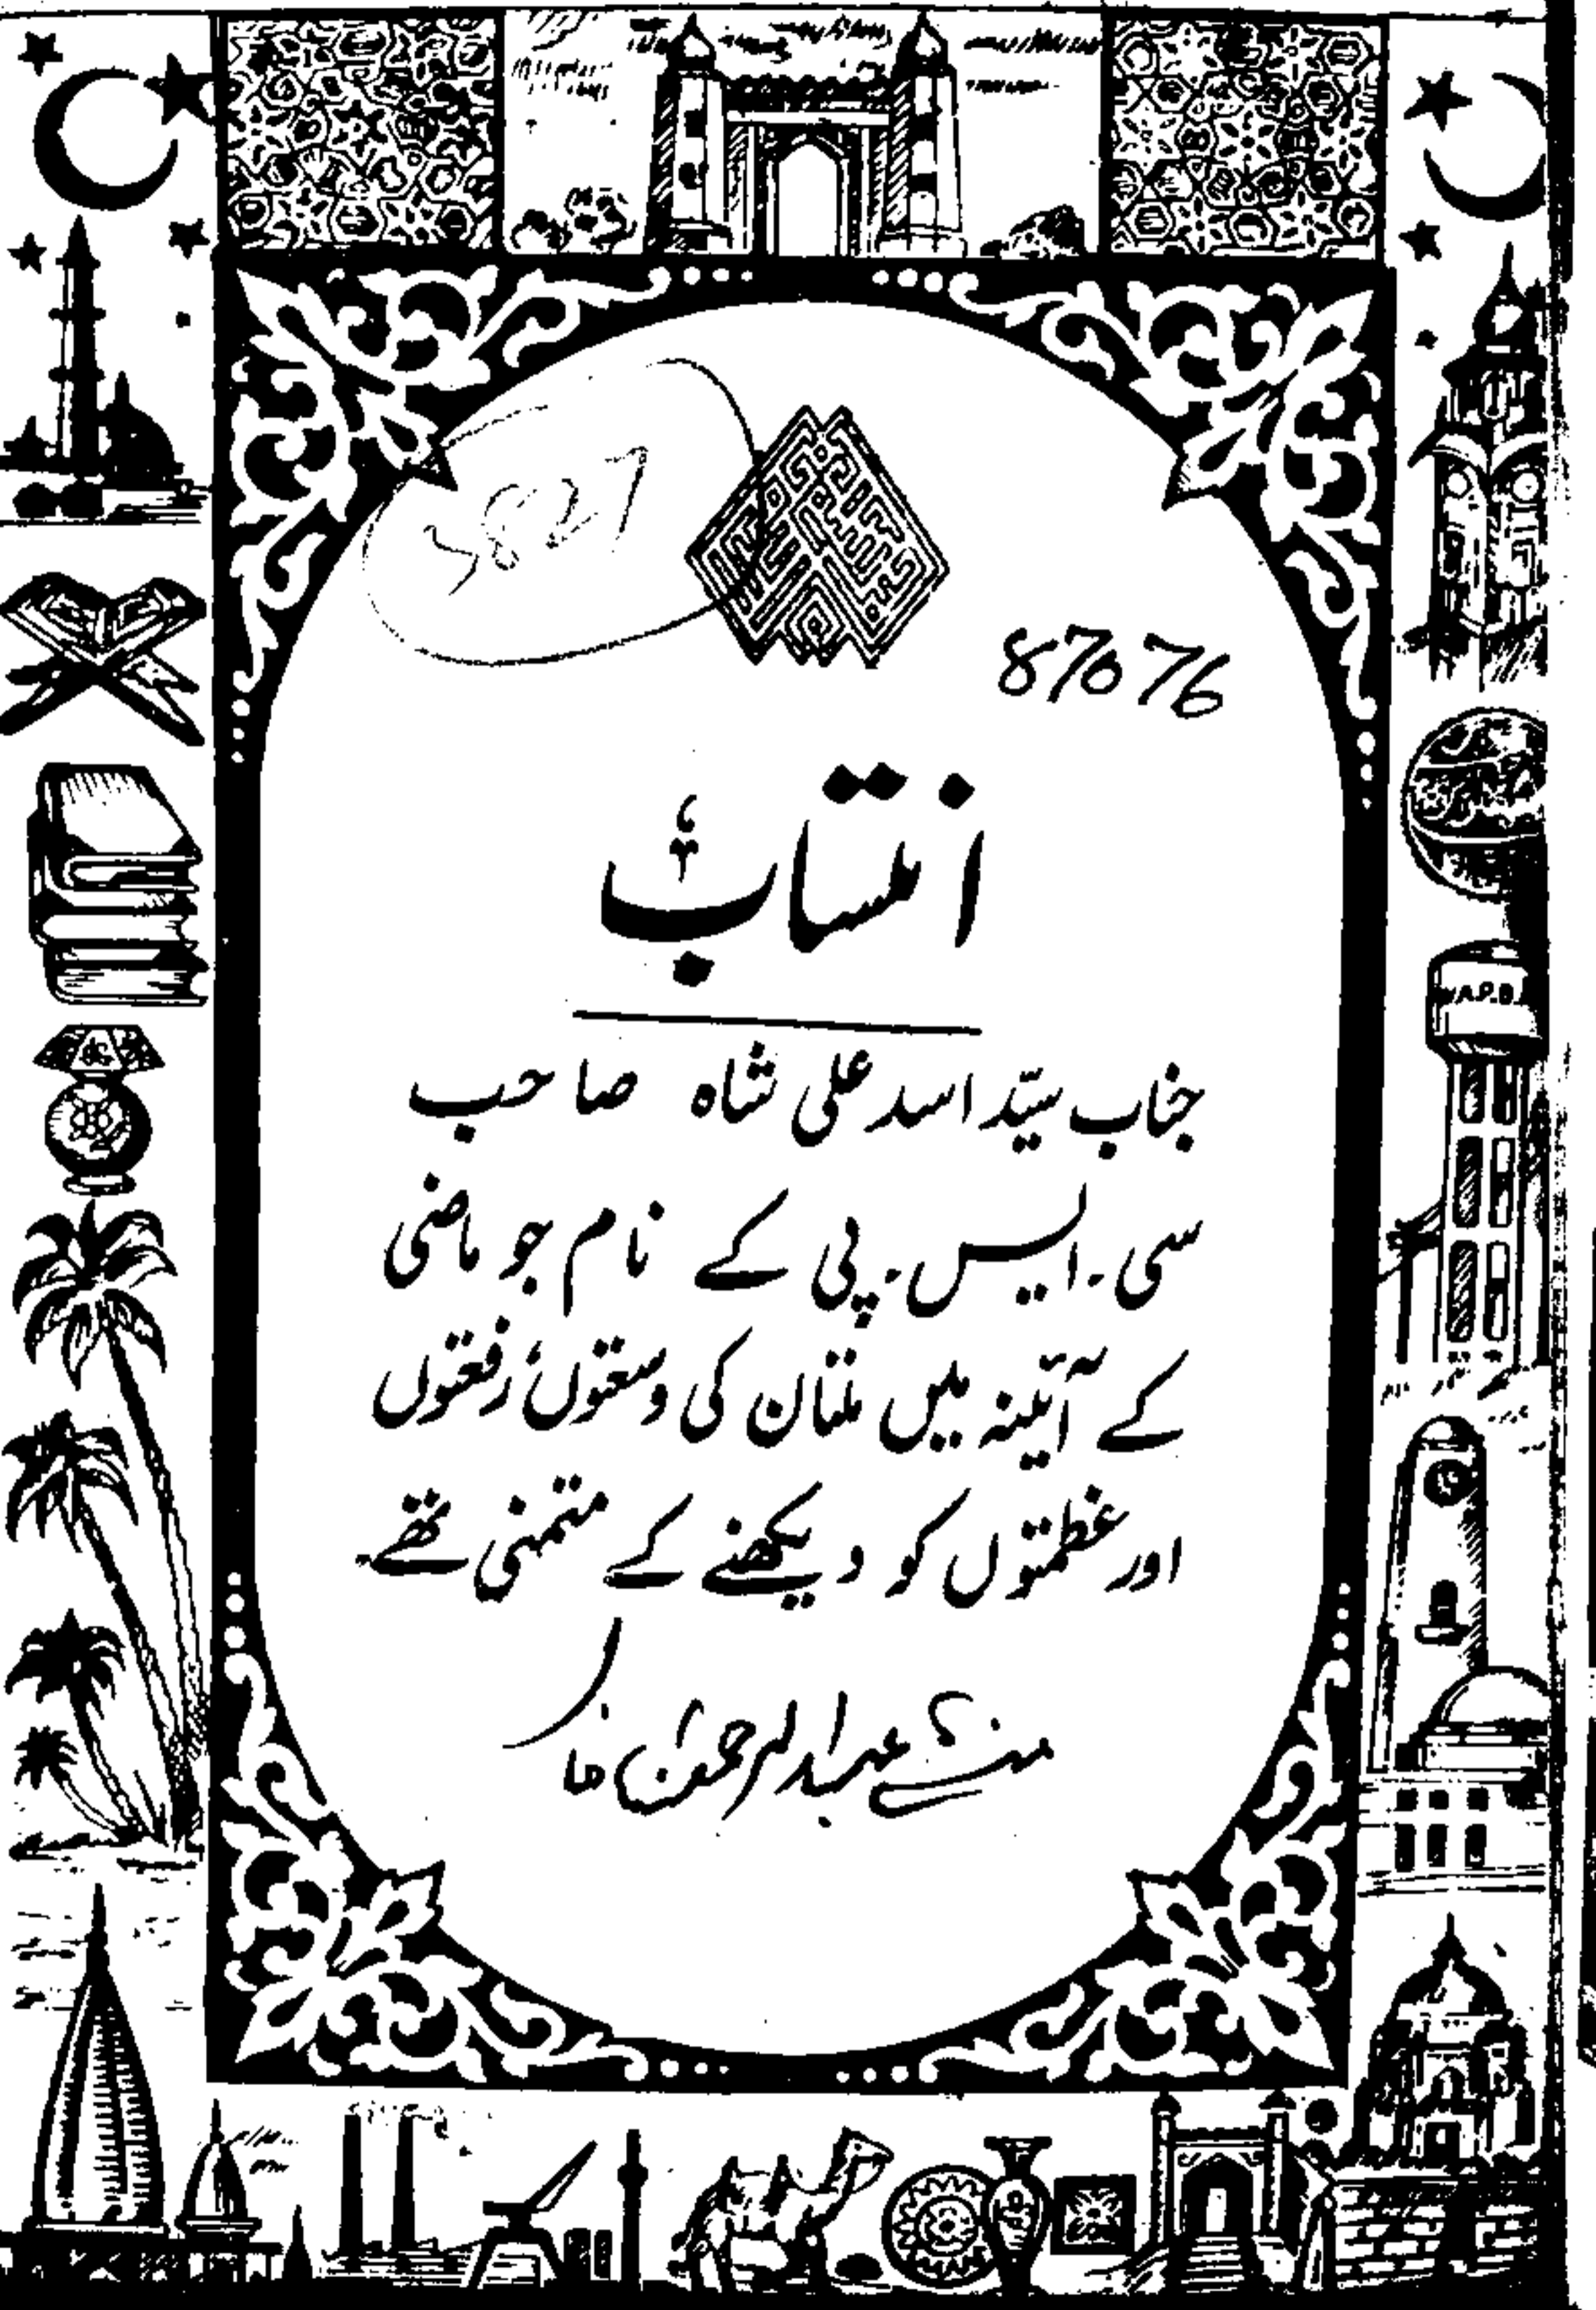 87076
انتساب
جناب سیّد اسد علی شاہ صاحب
سی۔ ایس۔ پی کے نام جو ماضی
کے آئینہ میں ملتان کی وسعتوں، رفعتوں
اور عظمتوں کو دیکھنے کے متمنی تھے۔
منشی عبدالرحمٰن خاں
W.A.P.D.